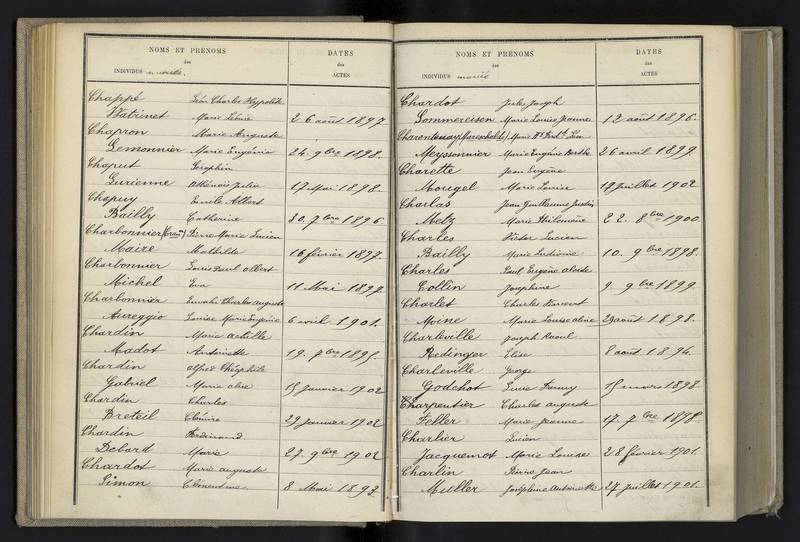 NOMS ET PRÉNOMS
des
INDIVIDUS mariés.
DATES
des
ACTES
Chappé Léon Charles Hyppolite
Watrinet Marie Lucie 26 août 1897
Chapron Marie Auguste
Lemonnier Marie Eugénie 24. 9bre 1898.
Chaput Séraphin
Lurienne Athénaïs Julie 17 Mai 1898.
Chapuy Emile Albert
Bailly Catherine 30. 7bre 1896
Charbonnier Pierre Marie Lucien
Maire Mathilde 16 février 1897.
Charbonnier Louis Paul Albert
Michel Eva 11 Mai 1897.
Charbonnier Charles Auguste
Aureggio Louise Marie Eugénie 6 avril 1901.
Chardin Marie Achille
Madot Antoinette 19. 7bre 1895.
Chardin Alfred
Gabriel Marie 15 Janvier 1902
Chardin Charles
Breteil 29 Janvier 1902
Chardin Ferdinand.
Debard Marie 27. 9bre 1902
Chardot Marie Auguste
Simon Clémentine 8 Mai 1893.
NOMS ET PRÉNOMS
des
INDIVIDUS mariés
DATES
des
ACTES
Chardot Jules Joseph
Sommereisen Marie Louise Jeanne 12 août 1896.
Charentenay (Marie
Meyssonnier Marie Eugénie Berthe 26 avril 1899.
Charette Jean Eugène
Mougel Marie Louise 12 Juillet 1902
Charlas Jean Guillaume Justin
Metz Marie Philomène 22. 8bre 1900.
Charles Victor Lucien
Bailly Marie Ludivine 10. 9bre 1898.
Charles Paul Eugène Aloïse
Collin Joséphine 9. 9bre 1899
Charlet Charles Vincent
Moine Marie Louise Aline 29 août 1898.
Charleville Joseph Raoul
Hedinger Elise 8 août 1894.
Charleville George
Godchot Lucie Fanny 15 mars 1898
Charpentier Charles Auguste
Feller Marie Jeanne 17. 7bre 1898
Charlier Lucien
Jacquemot Marie Louise 28 février 1901.
Charlin Pierre Jean
Muller Joséphine Antoinette 27 Juillet 1901.